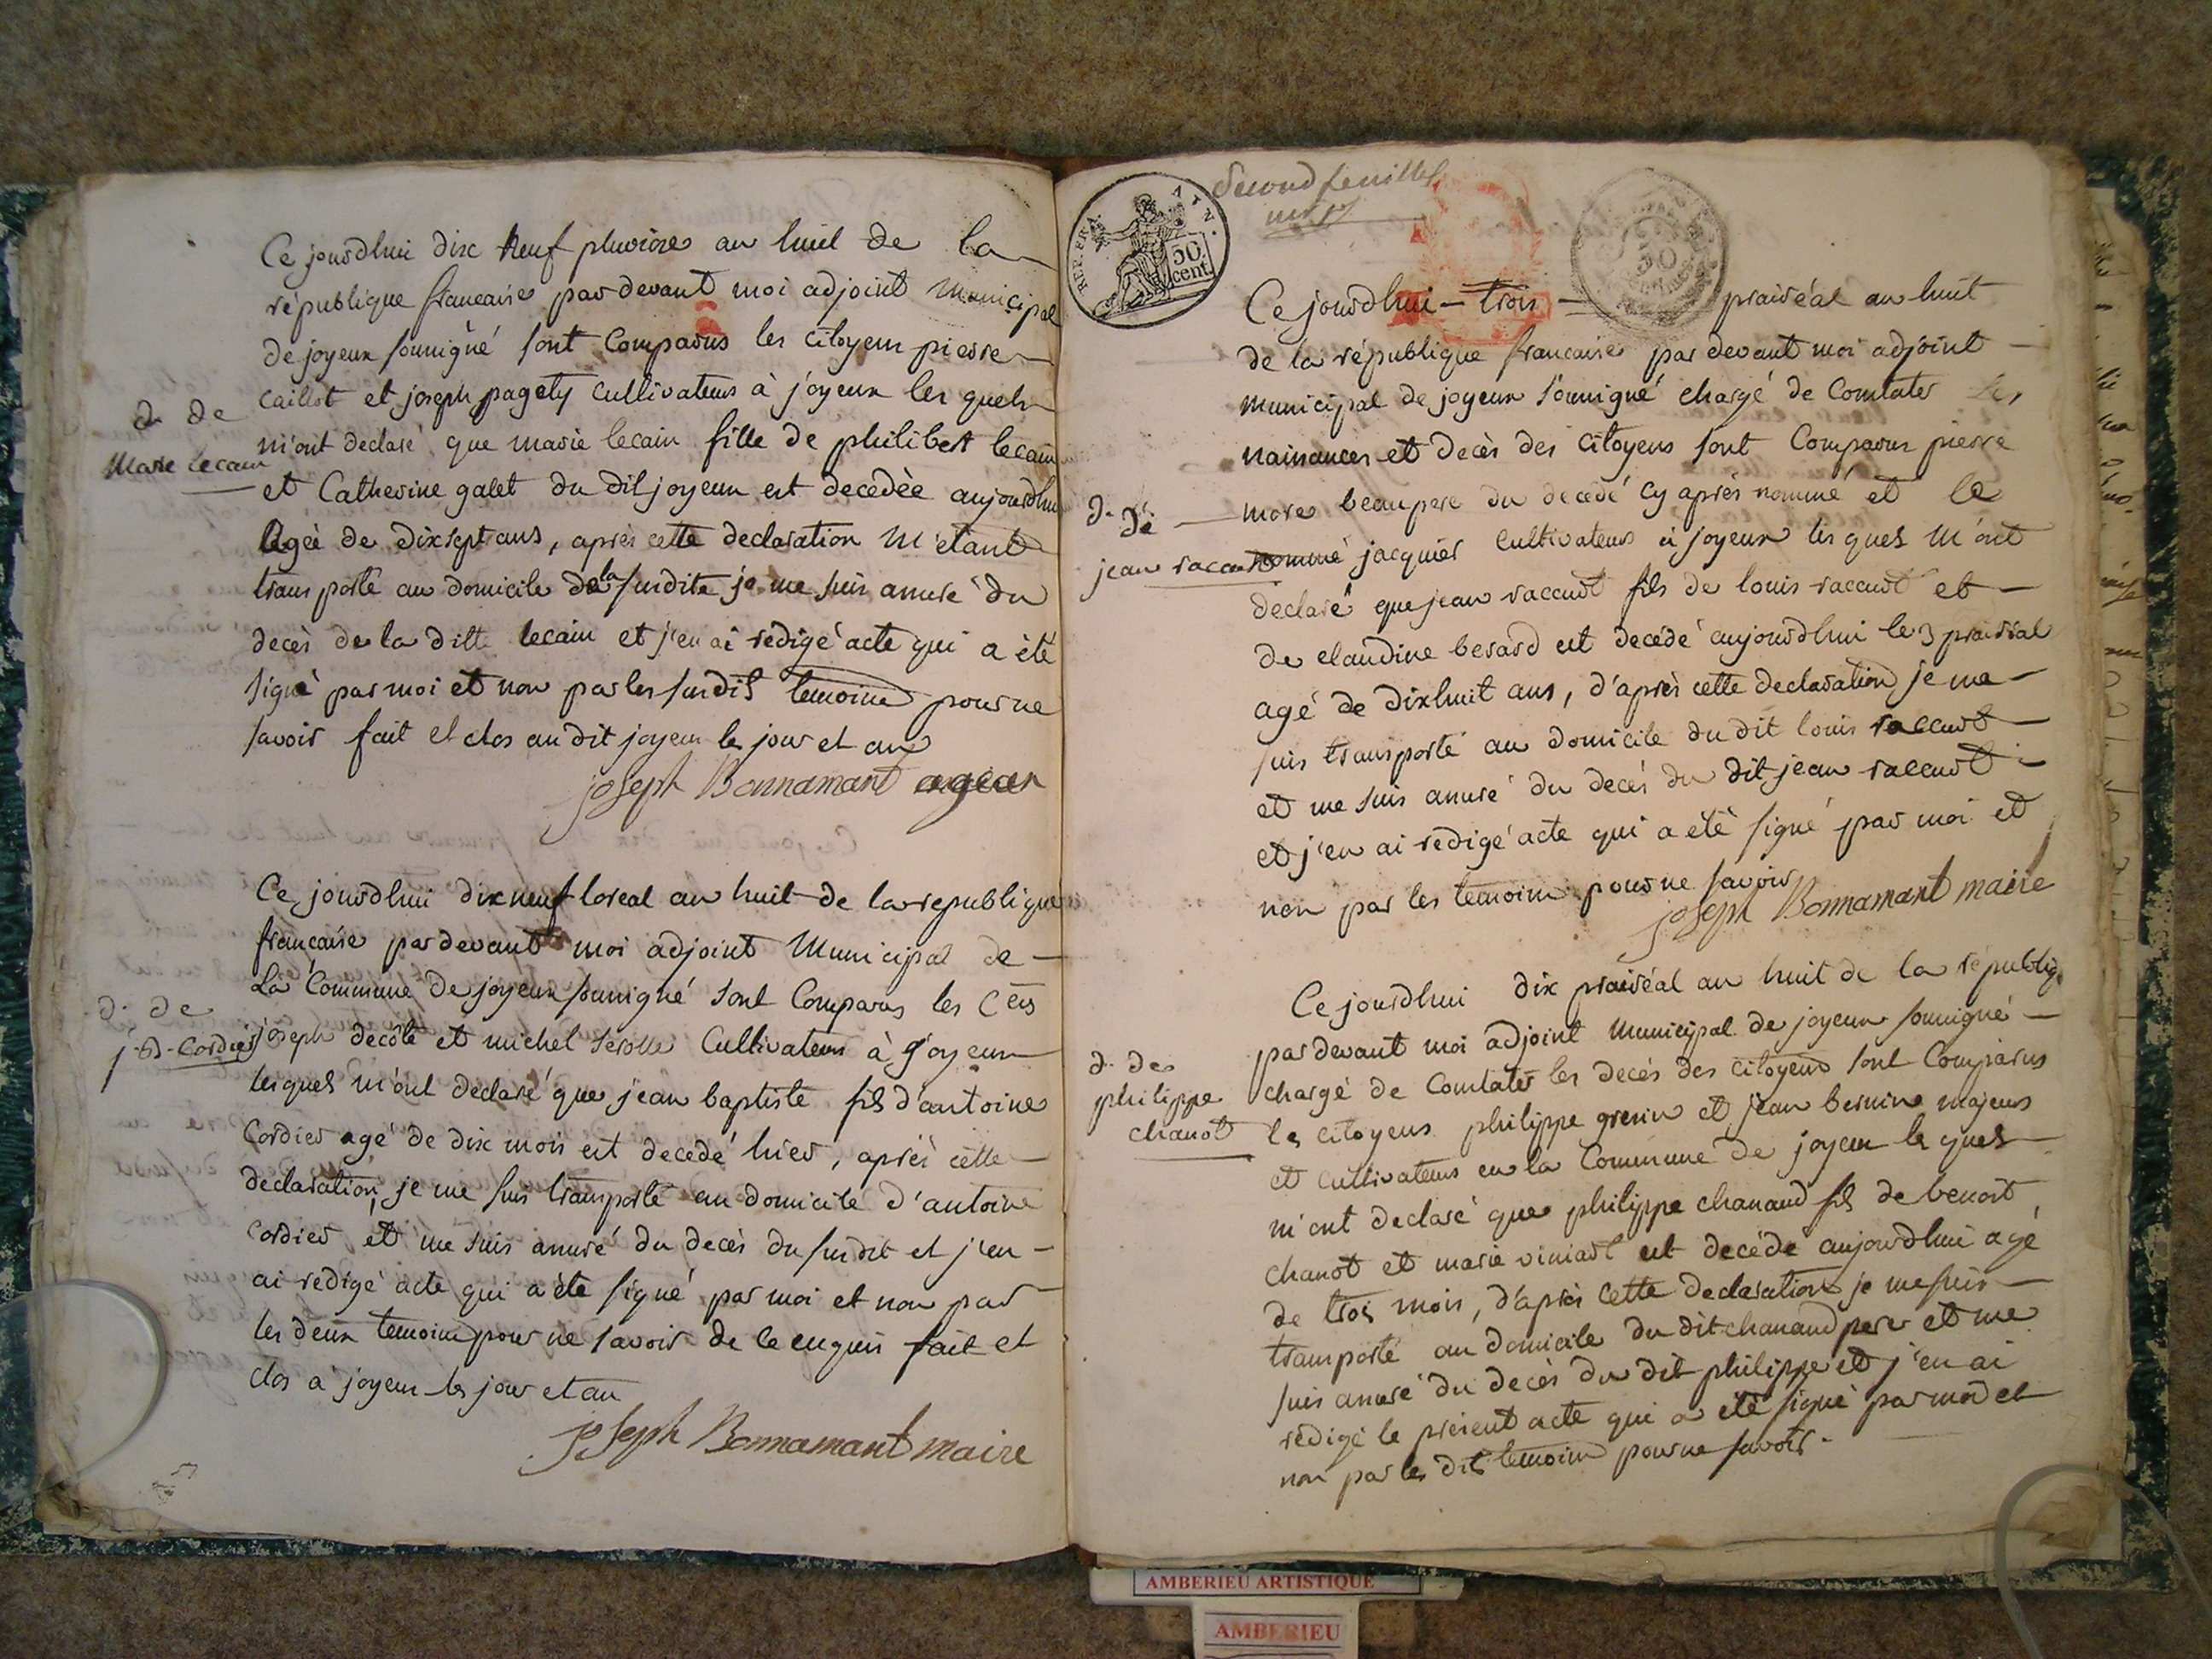 Ce jourdhui dix neuf pluviose an huit de la
république francaise pardevant moi adjoint municipal
de joyeux soussigné sont Comparus les Citoyens pierre
caillot et joseph pagety Cultivateurs à joyeux les quels
d. de
Marie lecain
m'ont declaré que marie lecain fille de philibert lecain
et Catherine galet du dit joyeux est decedèe aujourdhui
agée de dix sept ans, après cette declaration m'etant
transporté au domicile de la susdite je me suis assuré du
decès de la ditte lecain et j'en ai rédigé acte qui a été
signé par moi et non par les susdits temoins pour ne
savoir fait et clos au dit joyeux les jour et an
joseph Bonnamant agean
Ce jourdhui dix neuf floreal an huit de la republique
française par devant moi adjoint Municipal de
La Commune de joyeux soussigné sont Comparus les C ens
d. de
j. B. Cordier
joseph decôte et michel Cultivateurs à joyeux
lesquels m'ont declaré que jean baptiste fils d'antoine
Cordier agé de dix mois est decedé hier, après cette
declaration, je me suis transporté au domicile d'antoine
Cordier, et me suis assuré du decès du susdit et j'en
ai redigé acte qui a été signé par moi et non par
les deux temoins pour ne savoir de ce enquis fait et
clos a joyeux les jour et an
joseph Bonnamant maire
REP. FRA. 50 cent.
Second feuillet
50
Ce jourdhui - trois - prairéal an huit
de la république francaise par devant moi adjoint
municipal de joyeux soussigné chargé de Constater les
naissances et decès des Citoyens sont Comparus pierre
d. de
jean raccurt
more beaupere du decedé cy après nommé et le
nommé jacquier Cultivateurs à joyeux les quels m'ont
declaré que jean raccurt fils de louis raccurt et
de claudine berard est decedé aujourdhui le 3 prairial
agé de dixhuit ans, d'après cette declaration je me
suis transporté au domicile du dit louis raccurt
et me suis assuré du decès du dit jean raccurt
et j'en ai rédigé acte qui a été signé par moi et
non par les temoins pour ne savoir
joseph Bonnamant maire
Ce jourdhui dix prairéal an huit de la républiq
par devant moi adjoint municipal de joyeux soussigné
d. de
philippe
chanot
chargé de Constater les decès des citoyens sont Comparus
les citoyens philippe grenin et jean bernine majeurs
et cultivateurs en la Commune de joyeux les quels
m'ont declaré que philippe chanaud fils de benoit
chanot et marie viniart est decédé aujourdhui agé
de trois mois, d'après cette declaration je me suis
transporté au domicile du dit chanaud pere et me
suis assuré du decès du dit philippe et j'en ai
rédigé le présent acte qui a été signé par moi et
non par les dits temoins pour ne savoir.
AMBERIEU ARTISTIQUE
AMBERIEU